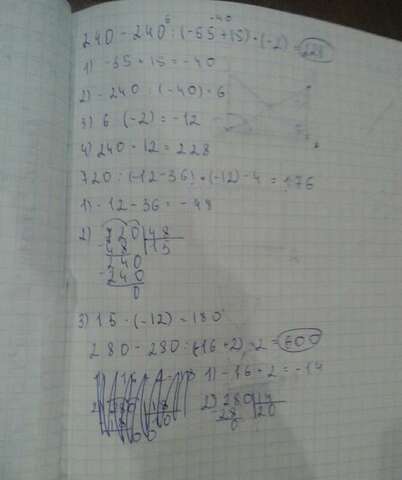 6 -40
240 - 240 : (-55 + 15) · (-2) = 228
1) -55 + 15 = -40
2) -240 : (-40) = 6
3) 6 · (-2) = -12
4) 240 - 12 = 228
720 : (-12 - 36) · (-12) - 4 = 176
1) -12 - 36 = -48
2) 720 | 48
- 48 | 15
240
- 240
0
3) 15 · (-12) = 180
280 - 280 : (-16 + 2) · 2 = 600
1) -16 + 2 = -14
2) 280 | 14
28 | 20
0